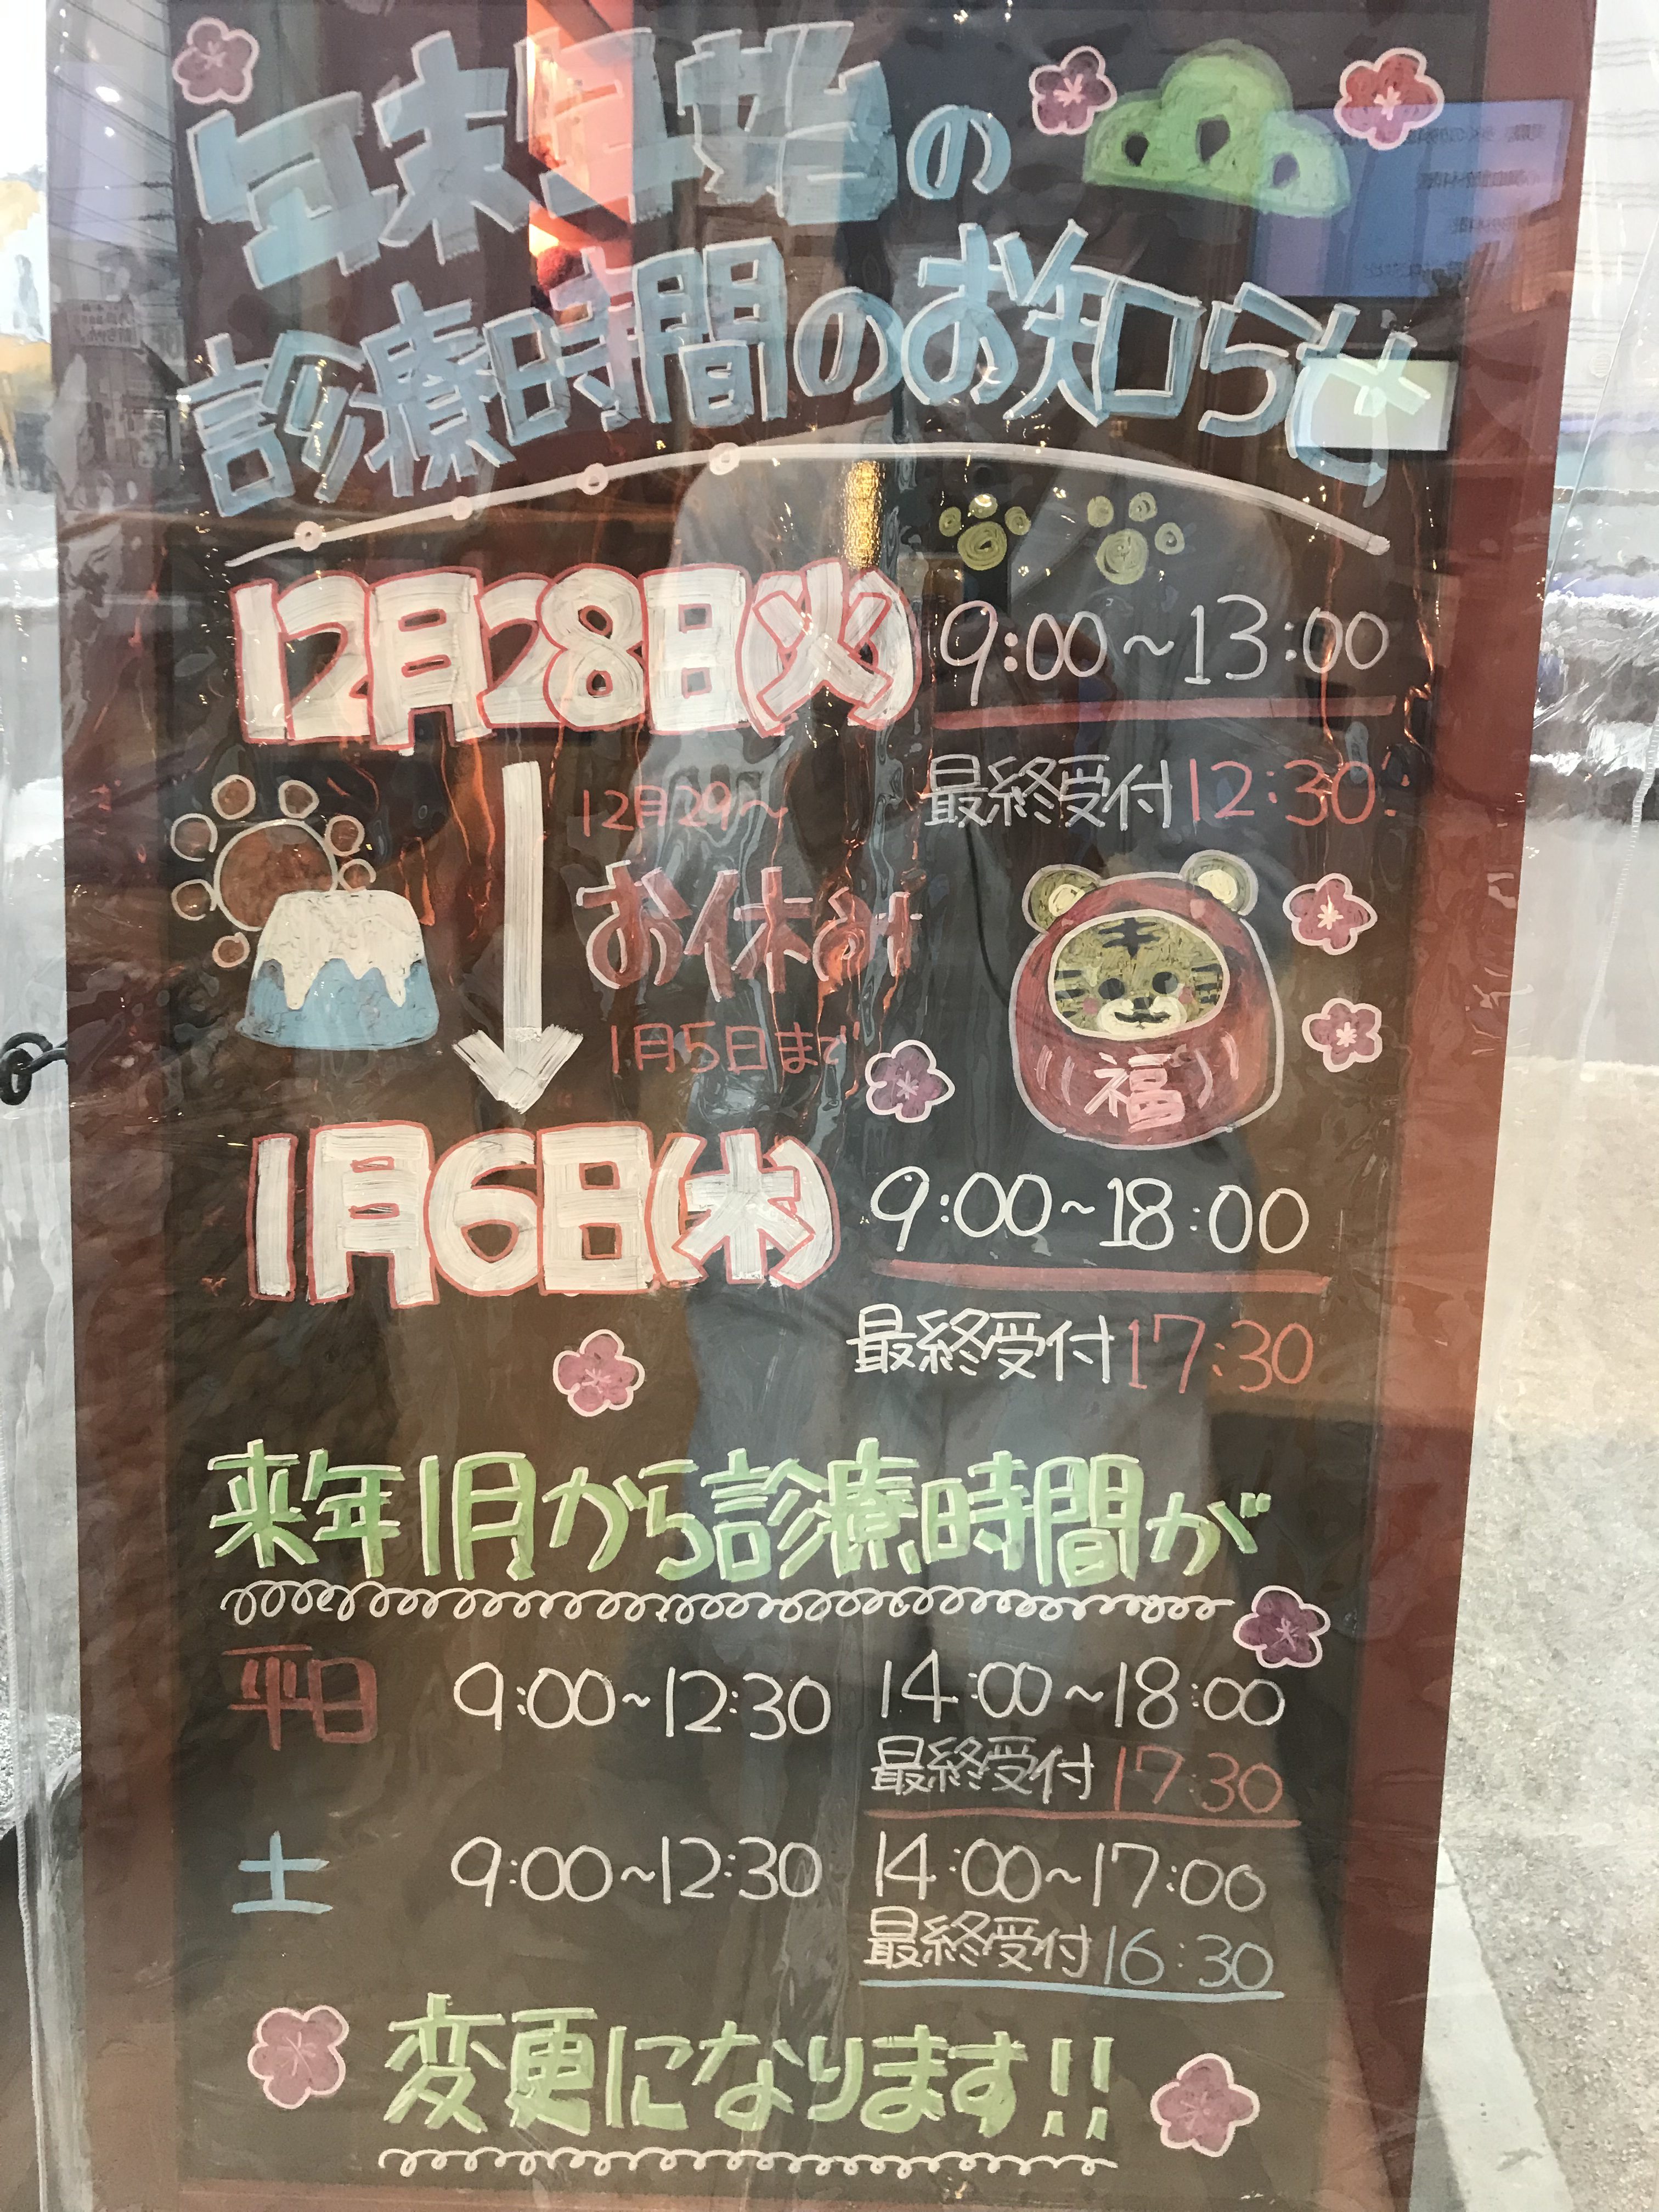 年末年始の
診療時間のお知らせ
12月28日(火) 9:00~13:00
最終受付12:30
12月29~
お休み
1月5日まで
福
1月6日(木) 9:00~18:00
最終受付17:30
来年1月から診療時間が
平日 9:00~12:30 14:00~18:00
最終受付17:30
土 9:00~12:30 14:00~17:00
最終受付16:30
変更になります!!